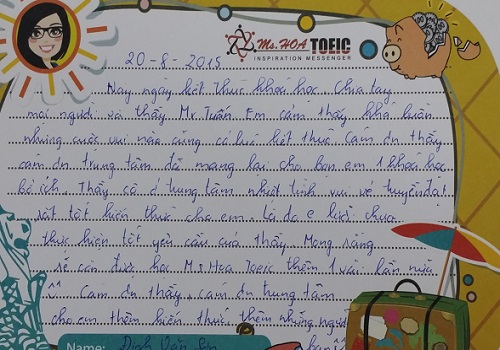 Ms.HOA TOEIC
INSPIRATION MESSENGER
20-8-2015
Nay ngày kết thúc khoá học. Chia tay
mọi người và thầy Mr. Tuấn. Em cảm thấy khá buồn
nhưng cuộc vui nào cũng có lúc kết thúc. Cám ơn thầy
cám ơn trung tâm đã mang lại cho bọn em 1 khoá học
bổ ích. Thầy cô ở trung tâm nhiệt tình vui vẻ truyền đạt
rất tốt kiến thức cho em. Là do e lười chưa
thực hiện tốt yêu cầu của thầy. Mong rằng
sẽ còn được học Ms Hoa Toeic thêm 1 vài lần nữa
^^ Cám ơn thầy, cám ơn trung tâm
cho em thêm kiến thức thêm những người
Name: Đinh Văn